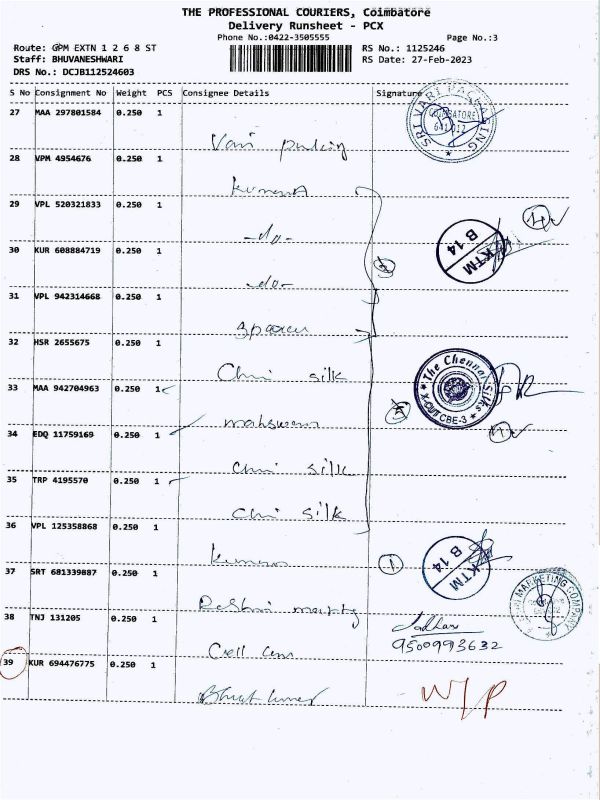 THE PROFESSIONAL COURIERS, Coimbatore
Delivery Runsheet - PCX
Phone No.:0422-3505555
Page No.:3
Route: GPM EXTN 1 2 6 8 ST
RS No.: 1125246
Staff: BHUVANESHWARI
RS Date: 27-Feb-2023
DRS No.: DCJB112524603
S No Consignment No Weight PCS Consignee Details Signature
27 MAA 297801584 0.250 1
SRI VARI PACKAGING
COIMBATORE
641 012
Vari
28 VPM 4954676 0.250 1
29 VPL 520321833 0.250 1
-do-
KTM
B 14
30 KUR 608884719 0.250 1
-do-
31 VPL 942314668 0.250 1
32 HSR 2655675 0.250 1
Chni silk
The Chennai Silks
X-OUT CBE-3
33 MAA 942704963 0.250 1
34 EDQ 11759169 0.250 1
Chni silk
35 TRP 4195570 0.250 1
Chni silk
36 VPL 125358868 0.250 1
1
KTM
B 14
37 SRT 681339087 0.250 1
MARKETING COMPANY
38 TNJ 131205 0.250 1
9500993632
39 KUR 694476775 0.250 1
W/P